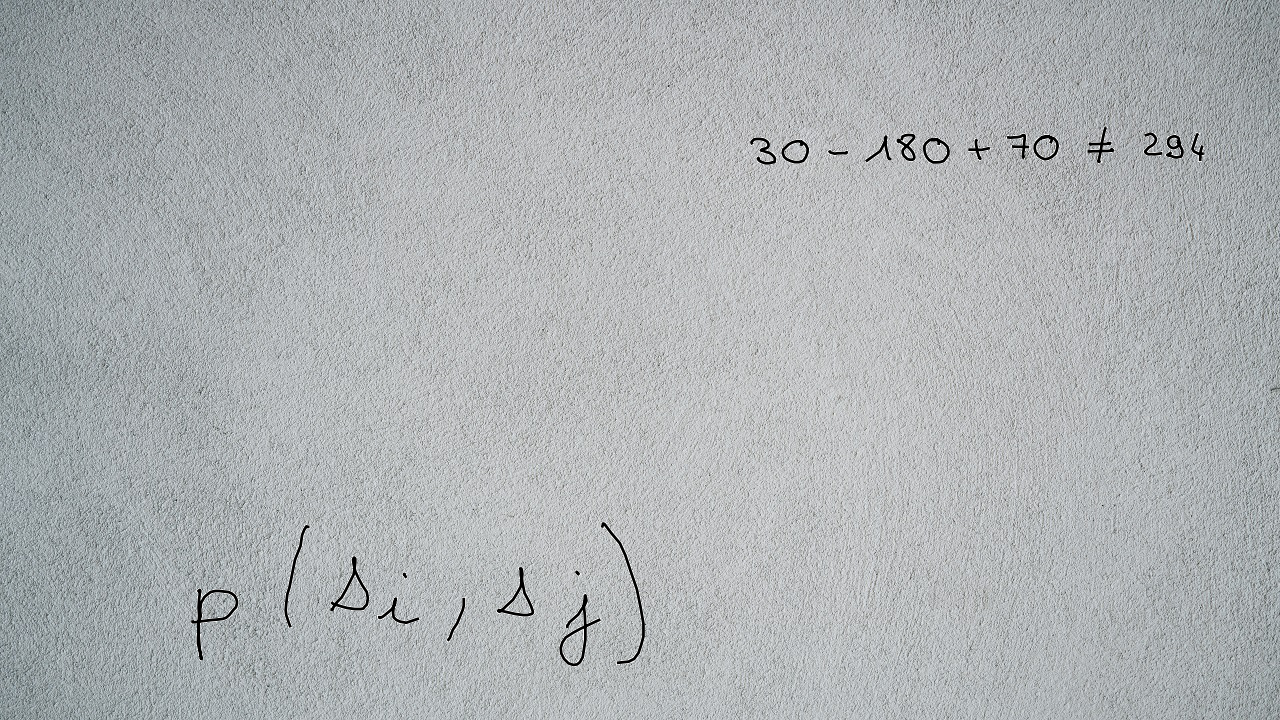 30 - 180 + 70 ≠ 294
p(s_i, s_j)